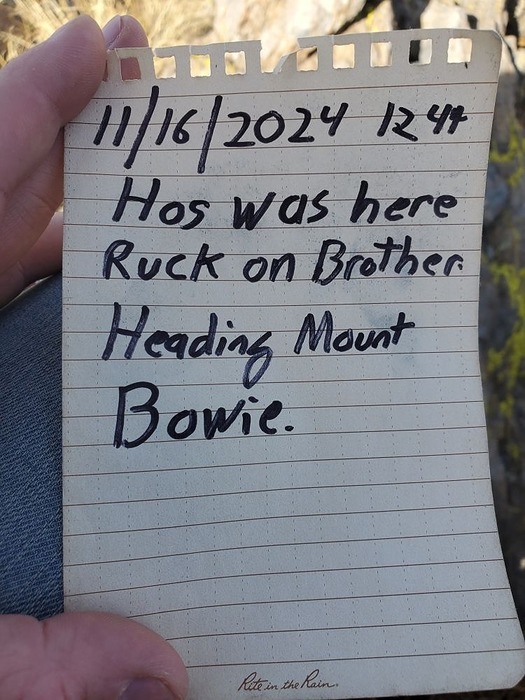 11/16/2024 1244
Hos was here
Ruck on Brother.
Heading Mount
Bowie.
Rite in the Rain.